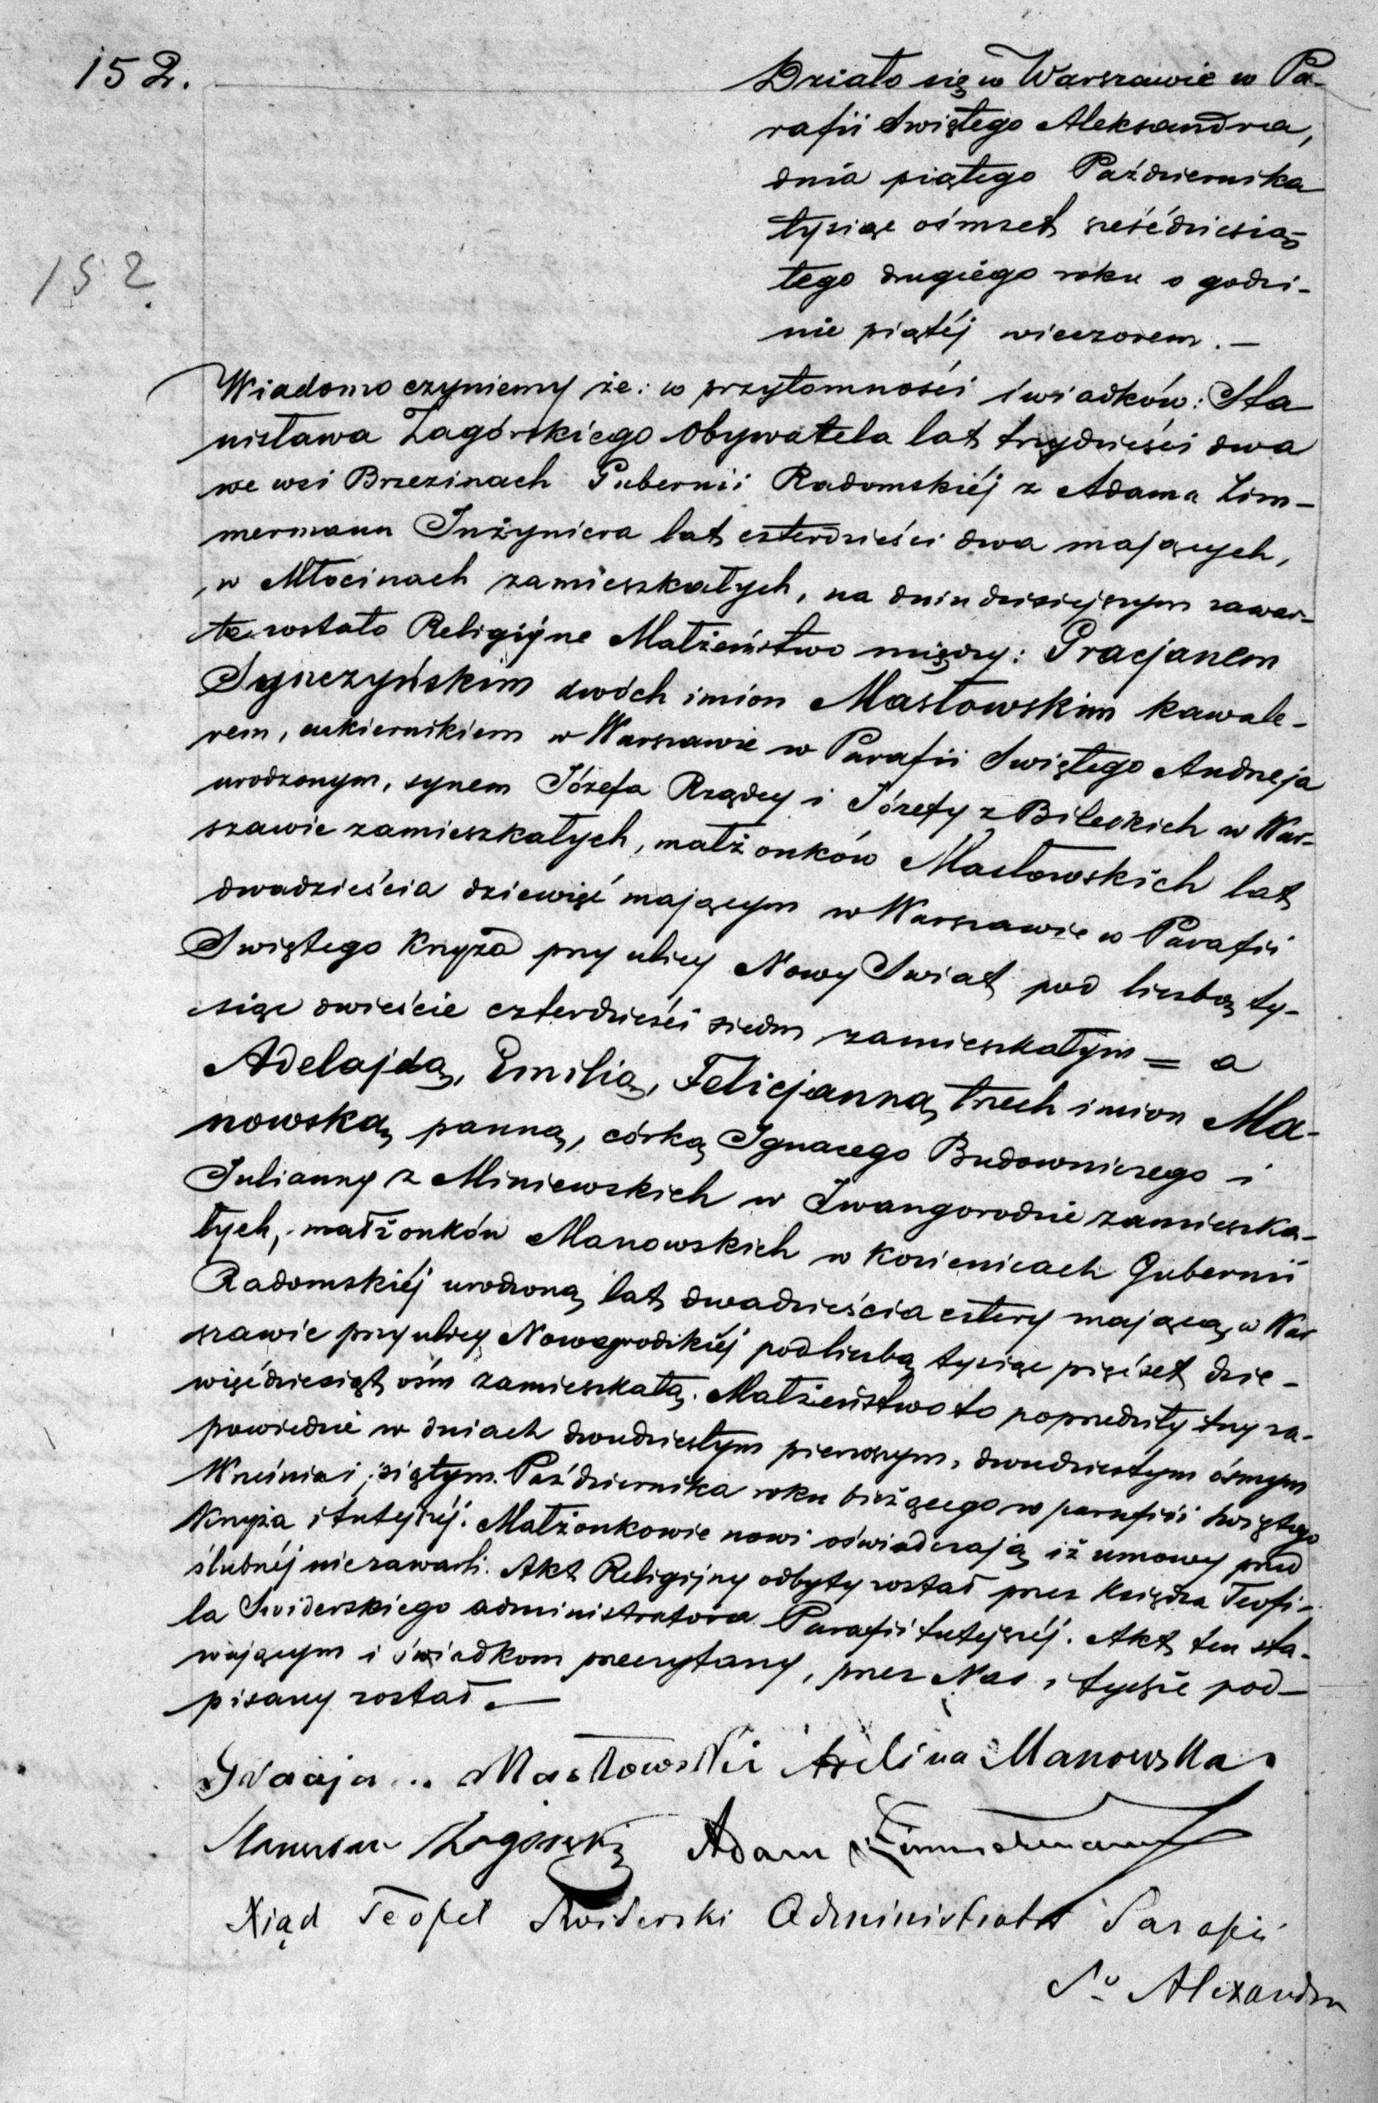 152.
Działo się w Warszawie w Pa-
rafii Świętego Aleksandra,
dnia piątego Października
tysiąc ośmset sześćdziesią-
tego drugiego roku o godzi-
nie piątéj wieczorem. —
152
Wiadomo czyniemy że: w przytomności świadków: Sta
nisława Zagórskiego Obywatela lat trzydzieści dwa
we wsi Brzezinach Gubernii Radomskiéj z Adama Zim-
mermann Inżyniera lat czterdzieści dwa mających,
w Młocinach zamieszkałych, na dniu dzisiejszym zawar-
te zostało Religijne Małżeństwo między: Gracjanem
dwóch imion Masłowskim kawale-
rem, cukiernikiem w Warszawie w Parafii Świętego Andrzeja
urodzonym, synem Józefa Rządcy i Józefy z Bileckich w War-
szawie zamieszkałych, małżonków Masłowskich lat
dwadzieścia dziewięć mającym w Warszawie w Parafii
Świętego Krzyża przy ulicy Nowy Świat pod liczbą ty-
siąc dwieście czterdzieści siedm zamieszkałym = a
Adelajdą, Emilią, Felicjanną trzech imion Ma-
nowską panną, córką Ignacego Budowniczego i
Julianny z Miniewskich w Iwangorodzie zamieszka-
łych, małżonków Manowskich w Kozienicach Gubernii
Radomskiéj urodzoną lat dwadzieścia cztery mającą, w War
szawie przy ulicy Nowogrodzkiéj pod liczbą tysiąc pięćset dzie-
więćdziesiąt ośm zamieszkałą. Małżeństwo to poprzedziły trzy za-
powiedzie w dniach dwudziestym pierwszym, dwudziestym ósmym
Września i piątym Października roku bieżącego w parafii Świętego
Krzyża i tutejszéj. Małżonkowie nowi oświadczają iż umowy przed
ślubnéj niezawarli. Akt Religijny odbyty został przez Księdza Teofi-
la Świderskiego administratora Parafii tutejszéj. Akt ten sta-
wającym i świadkom przeczytany, przez Nas i tychże pod-
pisany został. —
Masłowski Manowska
Zagórski Adam Zimmermann
Xiąd Teofil Świderski Administrator Parafii
Sº Alexandra